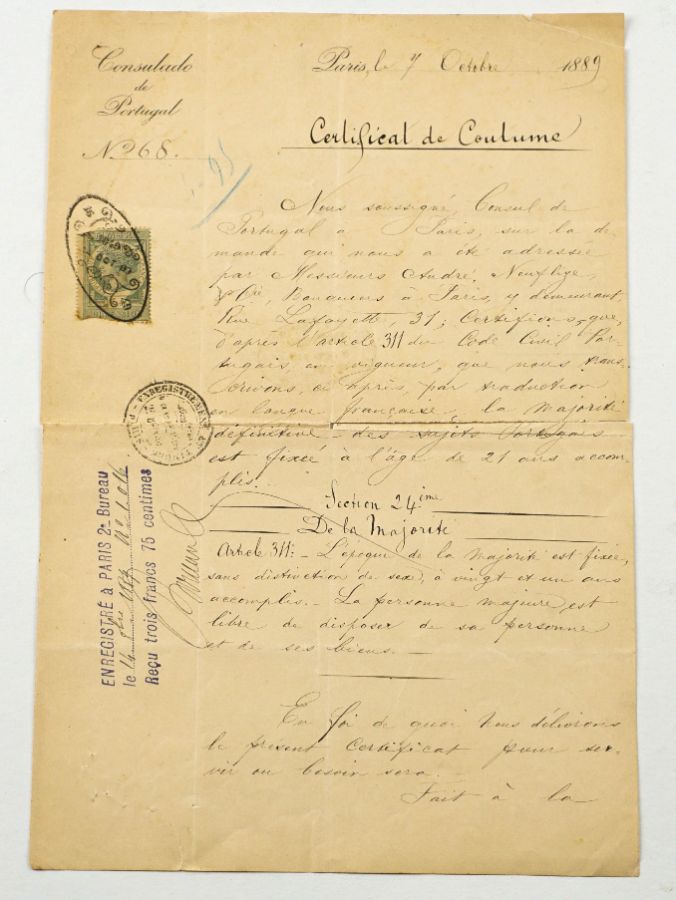 Consulado
de
Portugal
No 268.
Paris, le 7 Octobre 1889
Certificat de Coutume
Nous soussigné, Consul de
Portugal à Paris, sur la de-
mande qui nous a été adressée
par Messieurs André, Neuflize,
& Cie, Banquiers à Paris, y demeurant,
Rue Lafayette 31; Certifions, que,
d'après l'article 311 du Code Civil Por-
tugais, en vigueur, que nous trans-
crivons, ci après, par traduction
en langue française, la majorité
définitive des sujets Portugais
est fixée à l'âge de 21 ans accom-
plis.
Section 24ème
De la Majorité
Article 311: - L'époque de la majorité est fixée,
sans distinction de sexe, à vingt et un ans
accomplis. - La personne majeure est
libre de disposer de sa personne
et de ses biens. -
En foi de quoi Nous délivrons
le présent Certificat pour ser-
vir où besoin sera. -
Fait à la
ENREGISTREMENT
ENREGISTRÉ à PARIS 2e Bureau
le
Reçu trois francs 75 centimes